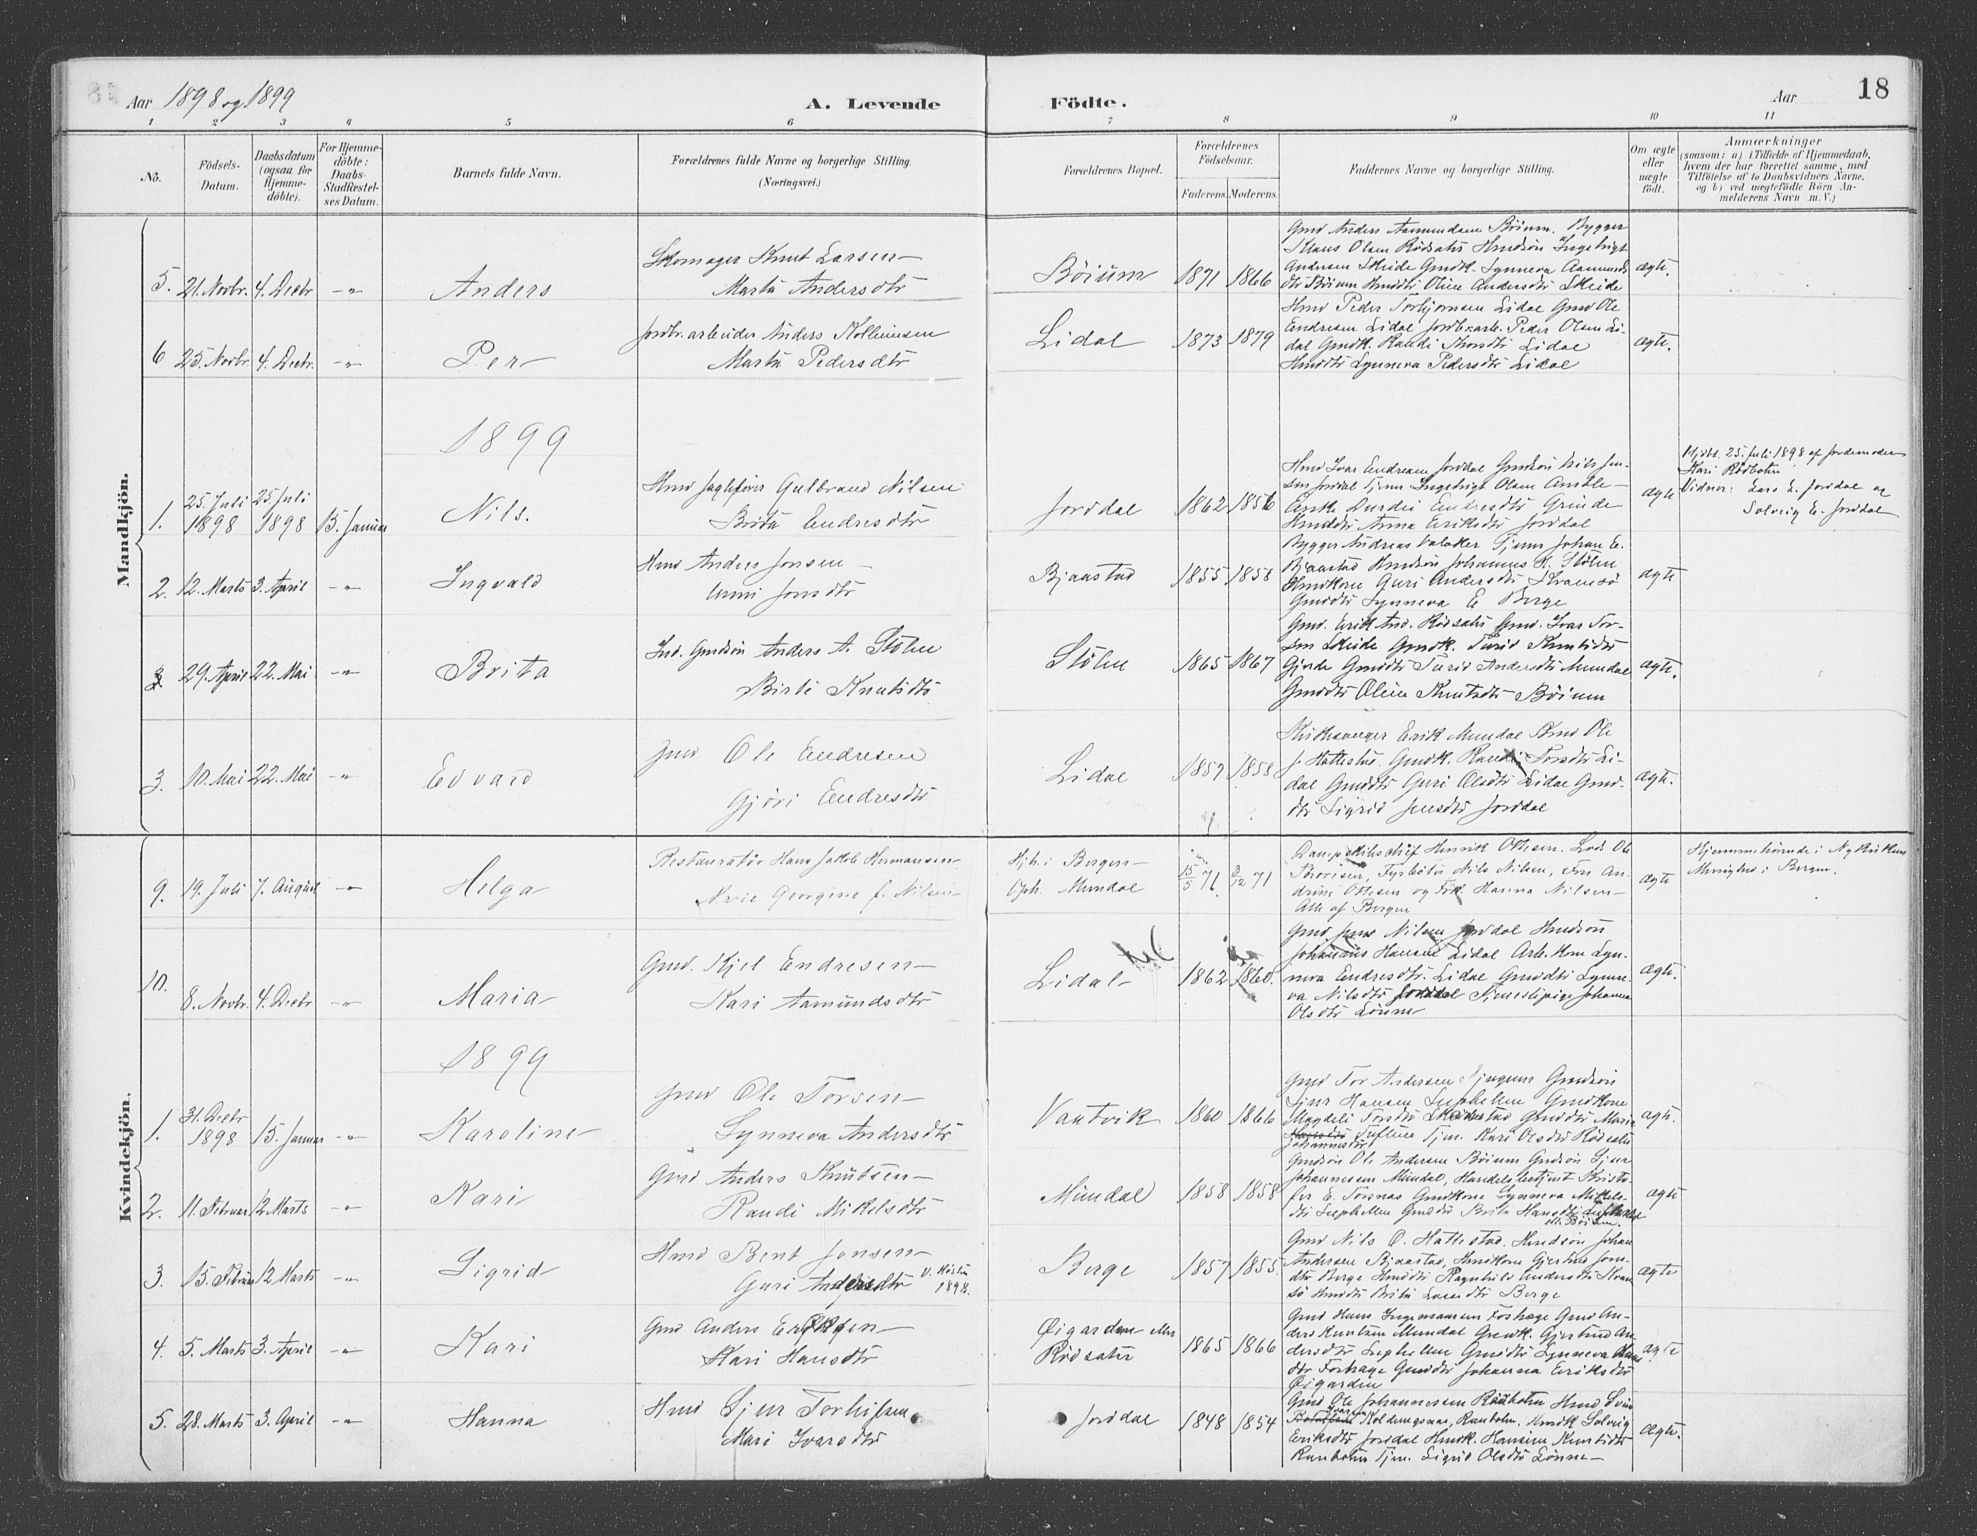 Aar 1898 og 1899
A. Levende Födte.
Aar
18
1 2 3 4 5 6 7 8 9 10 11
No.
Födsels-Datum.
Daabsdatum (ogsaa for Hjemme-döbte).
For Hjemme-döbte: Daabs-Stadfæstel-ses Datum.
Barnets fulde Navn.
Forældrenes fulde Navne og borgerlige Stilling.
(Næringsvei.)
Forældrenes Bopæl.
Forældrenes Födselsaar.
Faderens. Moderens.
Faddernes Navne og borgerlige Stilling.
Om ægte eller uægte födt.
Anmærkninger
(saasom: a) i Tilfælde af Hjemmedaab,
hvem der har forrettet samme, med
Tilföielse af to Daabsvidners Navne,
og b) ved uægtefödte Börn An-
melderens Navn m.V.)
Mandkjön.
5. 21. Novbr. 4. Decbr -"- Anders
Skomager Knut Larsen
Marta Andersdtr
Böium 1871 1866
Gmd Anders Aamundsen Böium. Bygger
Klaus Olsen Rödsæter Hmdsön Ingebrigt
Andersen Skeide Gmdk. Synneva Aamunds
dtr Böium Hmddtr Oline Andersdtr Skeide
ægte.
6 25. Novbr. 4. Decbr. -"- Per
Jordbr.arbeider Anders Kolbeinsen
Marta Pedersdtr
Lidal 1873 1879
Hmd Peder Torbjornsen Lidal Gmd Ole
Endresen Lidal Jordbrarb. Peder Olsen Li-
dal Gmdk. Randi Lidal
Hmddtr Synneva Pedersdtr Lidal
ægte.
1899
1. 25. Juli 1898 25. Juli 1898 15. Januar Nils.
Hmd Gulbrand Nilsen
Brita Endresdtr
Jordal 1862 1856
Hmd Ivar Endresen Jordal Gmdsön Nils Jen-
sen Jordal Tjener Ingebrigt Olsen
Enke Durdei Endresdtr Grinde
Hmddtr Anna Eriksdtr Jordal
ægte
Hjdbt. 25. Juli 1898 af Jordemoder
Kari Rödbotn
Vidner: Lars E. Jordal og
Solveig E. Jordal
2. 12. Marts 3. April -"- Ingvald
Hmd Anders Jonsen
Unni Jonsdtr
Bjaastad 1855 1858
Bygger Andreas Tjener Johan E.
Bjaastad Hmdsön Johannes K. Stölen
Hmdkone Guri Andersdtr
Gmddtr Synneva E Berge
ægte
3 29. April 22. Mai -"- Brita
Ind. Gmdsön Anders A. Stölen
Brita Knutsdtr
Stölen 1865 1867
Gmd. Erik And. Rödsæter Gmd. Ivar Tor-
sen Skeide Gmdk. Turid Knutsdtr
Gjerde Gmddtr Turid Andersdtr Mundal
Gmddtr Oline Knutsdtr Böium
ægte.
3. 10. Mai 22. Mai -"- Edvard
Gmd Ole Endresen
Gjöri Endresdtr
Lidal 1857 1858
Kirkesanger Erik Mundal Gmd Ole
J. Hattestad. Gmdk. Randi Torsdtr Li-
dal Gmddtr Guri Olsdtr Lidal Gmd-
dtr Sigrid Jensdtr Jordal
ægte.
Kvindekjön.
9. 19. Juli 7. August -"- Helga
Restauratör Hans Jakob Hermansen
Marie Georgine f. Nilsen
Hjh. i Bergen
Oph. Mundal
15/5 71 3/12 71
Dampskibs Henrik Ottesen. Lods Ole
Thorisen, Nils Nilsen, Fru An-
drine Ottesen og Frk Hanna Nilsen
Alle af Bergen
ægte
Hjemmehörende i Nykirkens
Menighed i Bergen.
10. 8. Novbr. 4. Decbr -"- Maria
Gmd. Kjel Endresen
Kari Aamundsdtr
Lidal 1862 1860.
Gmd Jens Nilsen Jordal Hmdsön
Johannes Hansen Lidal Arb. Syn-
neva Endresdtr. Lidal Gmddtr Synne-
va Nilsdtr Jordal Tjenestepige Johanna
Olsdtr Lönne
ægte.
1899
1. 31. Decbr 1898 15. Januar -"- Karoline
Gmd Ole Torsen
Synneva Andersdtr
Vaatvik 1860 1866
Gmd Tor Andersen Gmdsön
Sjur Hansen Suphellen Gmdkone
Magdeli Torsdtr Gmddtr Maria
Johannesdtr Tuftene Tjm. Kari Olsdtr Rödsæter
ægte.
2. 11. Februar 12 Marts -"- Kari
Gmd Anders Knutsen
Randi Mikelsdtr
Mundal 1858 1858
Gmdsön Ole Andersen Böium Gmdsön Sjur
Johannesen Mundal, Handelsbetjent Kristo-
fer E. Torsnæs Gmdkone Synneva Mikkels-
dtr Suphellen Gmddtr Brita Hansdtr
Böium.
ægte
3. 15. Februar 12 Marts -"- Sigrid
Hmd Bent Jonsen
Guri Andersdtr
1898.
Berge 1857 1855
Gmd Nils O. Hattestad. Hmdsön Johan
Andersen Bjaastad, Hmdkone Gjertrud Jons-
dtr Berge Hmddtr Ragnhild Andersdtr
Hmddtr Brita Larsdtr Berge
ægte
4. 5. Marts 3. April -"- Kari
Gmd Anders Eriksen
Kari Hansdtr
Öigarden
Rödsæter
1865 1866
Gmd Hans Ingemansen Forhage Gmd An-
ders Knutsen Mundal Gmdk. Gjertrud An-
dersdtr Suphellen Gmddtr Synneva Hans
dtr Forhage Gmddtr Johanna Eriksdtr
Öigarden
ægte
5. 28. Marts 3. April -"- Hanna
Hmd Sjur Torkilsen
Mari Ivarsdtr
Jordal 1848 1854
Gmd Ole Johannesen Rödbotn Hmd
Hmdk Solveig
Eriksdtr Jordal Hmdk. Hansine Knutsdtr
Tjm. Sigrid Olsdtr Lönne
ægte.